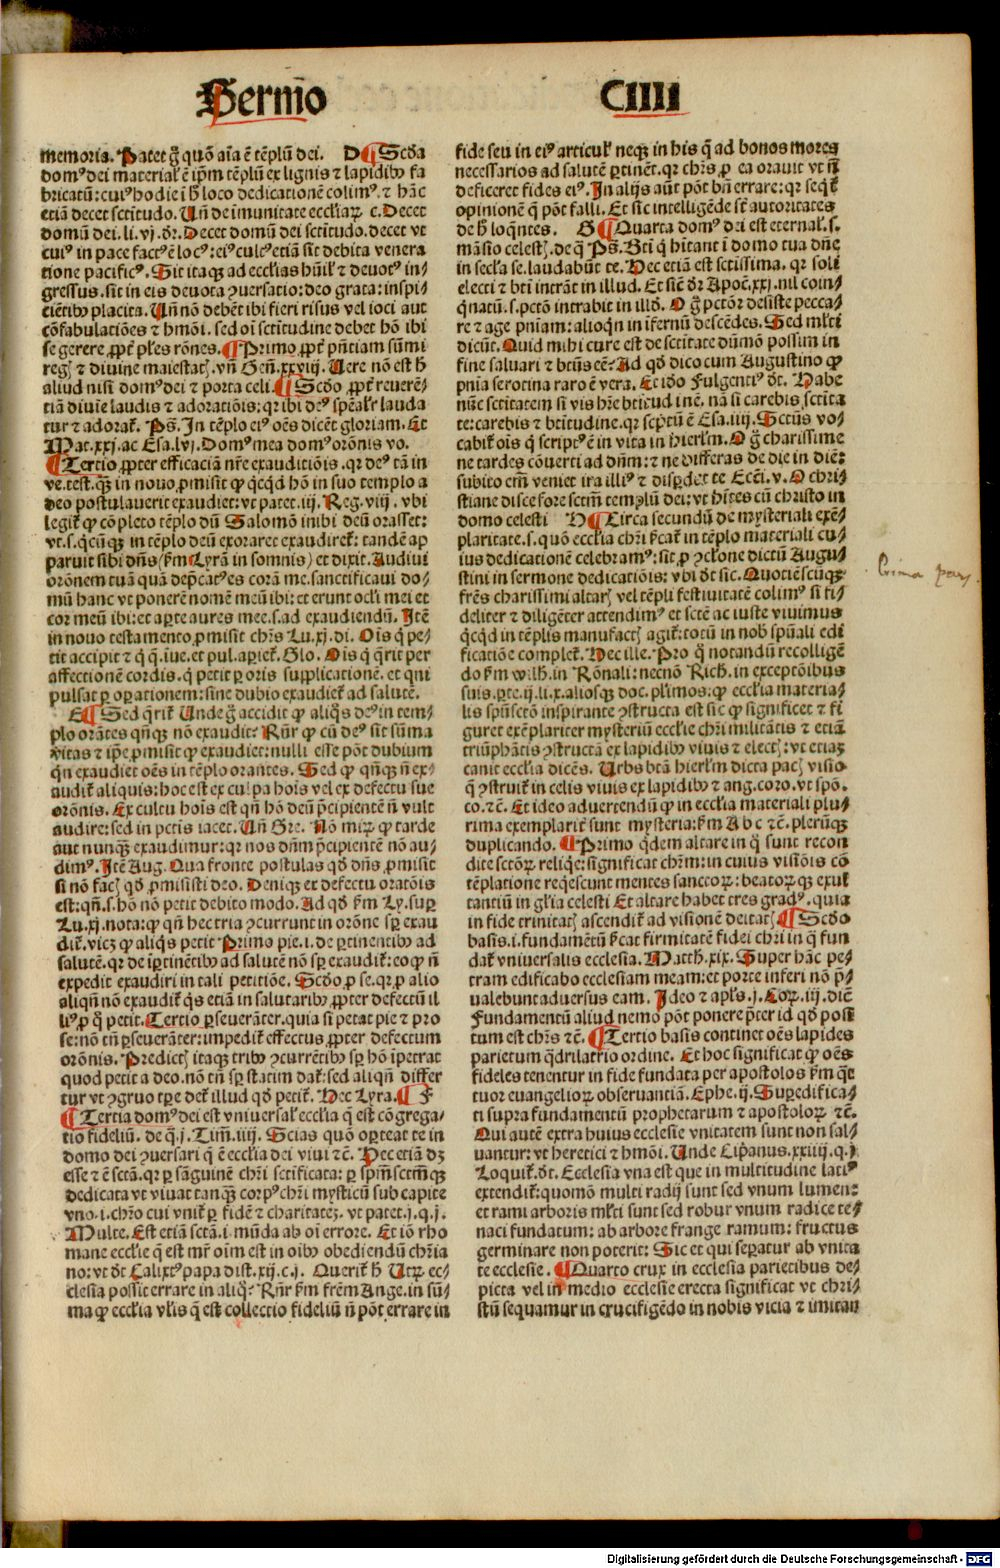 Sermo CIIII
memoria. Patet g̃ quõ aĩa ẽ tẽplũ dei. D ¶ Scd̃a
domꝰ dei material ẽ ip̃m tẽplũ ex lignis ⁊ lapidibꝰ fa
bricatũ: cuiꝰ hodie ĩ h̃ loco dedicationẽ colimꝰ. ⁊ hãc
etiã decet sctitudo. Uñ de imunitate eccl̃iaꝝ c. Decet
domũ dei. li. vj. dr̃. Decet domũ dei sctitudo. decet vt
cuiꝰ in pace factꝰ ẽ locꝰ: eiꝰ cultꝰ etiã sit debita venera
tione pacificꝰ. Sit itaqꝫ ad eccl̃ias hũil ⁊ deuotꝰ in⸗
gressus. sit in eis deuota ꝯuersatio: deo grata: inspi⸗
ciẽtibꝰ placita. Uñ nõ debẽt ibi fieri risus vel ioci aut
cõfabulatiões ⁊ hmõi. sed oĩ sctitudine debet hõ ibi
se gerere ꝓpt̃ pl̃es rõnes. ¶ Primo ꝓpt̃ pñtiam sũmi
reg ⁊ diuine maiestatꝭ. vñ Geñ. xxviij. Uere nõ est h̃
aliud nisi domꝰ dei ⁊ porta celi. ¶ Scd̃o ꝓpt̃ reuerẽ⸗
tiã diuĩe laudis ⁊ adoratiõis: qr ibi deꝰ spẽalr̃ lauda
tur ⁊ adorat̃. Ps̃. In tẽplo eiꝰ oẽs dicẽt gloriam. Et
Mat. xxj. ac Esa. lvj. Domꝰ mea domꝰ orõnis vo.
¶ Tertio ꝓpter efficaciã nr̃e exauditiõis. qr deꝰ tã in
ve. test. qꝫ in nouo ꝓmisit ꝙ qcqd hõ in suo templo a
deo postulauerit exaudiet: vt patet. iij. Reg. viij. vbi
legit̃ ꝙ cõpleto tẽplo dũ Salomõ inibi deũ orasset:
vt. s. qcũqꝫ in tẽplo deũ exoraret exaudiret̃: tandẽ ap
paruit sibi dñs (ẜm Lyrã in somnis) et dixit. Audiui
orõnem tuã quã dep̃catꝰ es corã me. sanctificaui do⸗
mũ hanc vt ponerẽ nomẽ meũ ibi: et erunt ocl̃i mei et
cor meũ ibi: et aꝑte aures mee. s. ad exaudiendũ. Itẽ
in nouo testamento ꝓmisit chr̃s Lu. xj. di. Ois q̃ pe⸗
tit accipit ⁊ q̃ q̃. iue. et pul. aꝑiet̃. Glo. Ois q̃ q̃rit per
affectionẽ cordis. q̃ petit ꝑ oris supplicationẽ. et qui
pulsat ꝑ oꝑationem: sine dubio exaudiet̃ ad salutẽ.
E ¶ Sed q̃rit̃ Unde g̃ accidit ꝙ aliqs̃ deꝰ in tem⸗
plo orãtes qñqꝫ nõ exaudit? Rñr ꝙ cũ deꝰ sit sũma
veritas ⁊ ip̃e ꝓmisit ꝙ exaudiet: nulli esse põt dubium
q̃n exaudiet oẽs in tẽplo orantes. Sed ꝙ qñqꝫ ñ ex⸗
audit̃ aliquis: hoc est ex culpa hoĩs vel ex defectu sue
orõnis. Ex cultu hoĩs est qñ hõ deũ p̃cipientẽ ñ vult
audire: sed in pctĩs iacet. Uñ Gre. Nõ miꝝ ꝙ tarde
aut nunqꝫ exaudimur: qr nos dñm p̃cipientẽ nõ au⸗
dimꝰ. Itẽ Aug. Qua fronte postulas qd̃ dñs ꝓmisit
si nõ facꝭ qd̃ ꝓmisisti deo. Deniqꝫ ex defectu oratõis
est: qñ. s. hõ nõ petit debito modo. Ad qd̃ ẜm Ly. suꝑ
Lu. xj. nota: ꝙ qñ hec tria ꝯcurrunt in orõne sꝑ exau
dit̃. vicꝫ ꝙ aliqs petit Primo pie. i. de ꝑtinentibꝰ ad
salutẽ. qr de iꝑtinẽtibꝰ ad salutẽ nõ sꝑ exaudit̃: eo ꝙ ñ
expedit exaudiri in tali petitiõe. Scd̃o ꝓ se. qr ꝓ alio
aliqñ nõ exaudit̃ q̃s etiã in salutaribꝰ ꝓpter defectũ il
liꝰ ꝓ q̃ petit. Tertio ꝑseuerãter. quia si petat pie ⁊ pro
se: nõ tñ ꝑseuerãter: impedit̃ effectus ꝓpter defectum
orõnis. Predictꝭ itaqꝫ tribꝰ ꝯcurrẽtibꝰ sꝑ hõ ipetrat
quod petit a deo. nõ tñ sꝑ statim dat̃: sed aliqñ differ
tur vt ꝯgruo tꝑe det̃ illud qd̃ petit̃. Hec Lyra. ¶ F
¶ Tertia domꝰ dei est vniuersal eccl̃ia q̃ est cõgrega⸗
tio fideliũ. de q̃. j. Tim̃. iiij. Scias quõ oꝑteat te in
domo dei ꝯuersari q̃ ẽ eccl̃ia dei viui ⁊c̃. Hec etiã dꝫ
esse ⁊ ẽ sctã. qr ꝑ sãguinẽ chr̃i sctificata: ꝑ spm̃sctm̃qꝫ
dedicata vt viuat tanqꝫ corpꝰ chr̃i mysticũ sub capite
vno. i. chr̃o cui vnit̃ ꝑ fidẽ ⁊ charitatẽ. vt patet. j. q. j.
Multe. Est etiã sctã. i. mũda ab oĩ errore. Et iõ rho
mane eccl̃ie q̃ est mr̃ oĩm est in oĩbꝰ obediendũ chr̃ia
no: vt dt̃ Calixtꝰ papa dist. xij. c. j. Querit̃ h̃ Utꝝ ec⸗
clesia possit errare in aliq̃? Rñr ẜm fr̃em Ange. in sũ⸗
ma ꝙ eccl̃ia vl̃is q̃ est collectio fideliũ ñ põt errare in
fide seu in eiꝰ articul neqꝫ in his q̃ ad bonos mores
necessarios ad salutẽ ꝑtinẽt. qr chr̃s ꝓ ea orauit vt ñ
deficeret fides eiꝰ. In alijs aũt põt bñ errare: qr seq̃t̃
opinionẽ q̃ põt falli. Et sic intelligẽde st̃ autoritates
de h̃ loq̃ntes. G ¶ Quarta domꝰ dei est eternal. s.
mãsio celestꝭ. de q̃ Ps̃. Bti̇ q̃ hitant i domo tua dñe
in secl̃a se. laudabũt te. Hec etiã est sctissima. qr soli
electi ⁊ bti̇ intrãt in illud. Et siẽ dr̃ Apoc̃. xxj. nil coin⸗
q̃natũ. s. pctõ intrabit in illd̃. O g̃ pctõr desiste pecca⸗
re ⁊ age pniam: alioq̃n in ĩfernũ descẽdes. Sed ml̃ti
dicũt. Quid mihi cure est de sctitate dũmõ possim in
fine saluari ⁊ bt̃us eẽ? Ad qd̃ dico cum Augustino ꝙ
pnia serotina raro ẽ vera. Et idõ Fulgentiꝰ dt̃. Habe
nũc sctitatem si vis hr̃e btitud inẽ. nã si carebis sctita
te: carebis ⁊ btitudine. qr sc̃ptũ ẽ Esa. iiij. Sctũs vo⸗
cabit̃ ois q̃ scriptꝰ ẽ in vita in hierl̃m. O g̃ charissime
ne tardes cõuerti ad dñm: ⁊ ne differas de die in diẽ:
subito em̃ veniet ira illiꝰ ⁊ disꝑdet te Eccl̃i. v. O chri⸗
stiane disce fore sctm̃ templũ dei: vt hites cũ christo in
domo celesti H ¶ Circa secundũ de mysteriali exẽ⸗
plaritate. s. quõ eccl̃ia chr̃i ẜcat̃ in tẽplo materiali cu⸗
ius dedicationẽ celebramꝰ: sit ꝓ ꝯclone dictũ Augu⸗
stini in sermone dedicatiõis: vbi dt̃ sic. Quotiẽscũqꝫ
fr̃ẽs charissimi altarꝭ vel tẽpli festiuitatẽ colimꝰ si fi⸗
deliter ⁊ diligẽter attendimꝰ et sctẽ ac iuste viuimus
q̃cq̃d in tẽplis manufactꝭ agit̃: totũ in nob̃ spũali edi
ficatiõe complet̃. Hec ille. Pro q̃ notandũ recolligẽ
do ẜm wilh̃. in Rõnali: necnõ Rich. in exceptõibus
suis. ꝑte. ij. li. x. aliosqꝫ doc. pl̃imos: ꝙ eccl̃ia materia⸗
lis spũsctõ inspirante ꝯstructa est sic ꝙ significet ⁊ fi
guret exẽplariter mysteriũ eccl̃ie chr̃i militãtis ⁊ etiã
triũphãtis ꝯstructã ex lapidibꝰ viuis ⁊ electꝭ: vt etiaꝫ
canit eccl̃ia dicẽs. Urbs btã hierl̃m dicta pacꝭ visio
q̃ ꝯstruit̃ in celis viuis ex lapidibꝰ ⁊ ang. coro. vt spõ.
co. ⁊c̃. Et ideo aduertendũ ꝙ in eccl̃ia materiali plu⸗
rima exemplarit̃ sunt mysteria: ẜm A b c ⁊c̃. plerũqꝫ
duplicando. ¶ Primo q̃dem altare in q̃ sunt recon
dite sctõꝝ reliq̃e: significat chr̃m: in cuius visiõis cõ
tẽplatione reqescunt mentes sanctoꝝ: beatoꝝqꝫ exul
tantiũ in gl̃ia celesti Et altare habet tres gradꝰ. quia
in fide trinitatꝭ ascendit̃ ad visionẽ deitatꝭ ¶ Scd̃o
basis. i. fundamẽtũ ẜcat firmitatẽ fidei chr̃i in q̃ fun
dat̃ vniuersalis ecclesia. Matth. xix. Super hãc pe⸗
tram edificabo ecclesiam meam: et porte inferi nõ p̃⸗
ualebunt aduersus eam. Ideo ⁊ apl̃s. j. Coꝝ. iij. diẽ
Fundamentũ aliud nemo põt ponere p̃ter id qd̃ posi
tum est chr̃s ⁊c̃. ¶ Tertio basis continet oẽs lapides
parietum q̃drilatrio ordine. Et hoc significat ꝙ oẽs
fideles tenentur in fide fundata per apostolos ẜm q̃t
tuor euangelioꝝ obseruantiã. Ephe. ij. Suꝑedifica⸗
ti supra fundamentũ prophetarum ⁊ apostoloꝝ ⁊c̃.
Qui autẽ extra huius ecclesie vnitatem sunt non sal⸗
uantur: vt heretici ⁊ hmõi. Unde Cip̃anus. xxiiij. q. j.
Loquit̃. dt̃. Ecclesia vna est que in multitudine latiꝰ
extendit̃: quomõ multi radij sunt sed vnum lumen:
et rami arboris ml̃ti sunt sed robur vnum radice te⸗
naci fundatum: ab arbore frange ramum: fructus
germinare non poterit: Sic et qui seꝑatur ab vnita
te ecclesie. ¶ Quarto crux in ecclesia parietibus de⸗
picta vel in medio ecclesie erecta significat vt chri⸗
stũ sequamur in crucifigẽdo in nobis vicia ⁊ imitan
Prima pars.
Digitalisierung gefördert durch die Deutsche Forschungsgemeinschaft - DFG